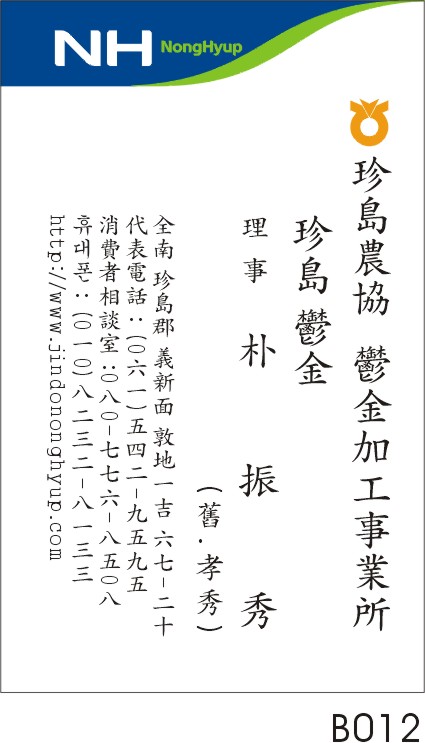 NH NongHyup
珍島農協 鬱金加工事業所
珍島 鬱金
理事 朴振秀
(舊.孝秀)
全南 珍島郡 義新面 敦地一吉 六七-二十
代表電話:(0六一)五四二-九五九五
消費者相談室:0八0-七七六-八五0八
휴대폰:(0一0)八二三二-八一三三
http://www.jindononghyup.com
B012